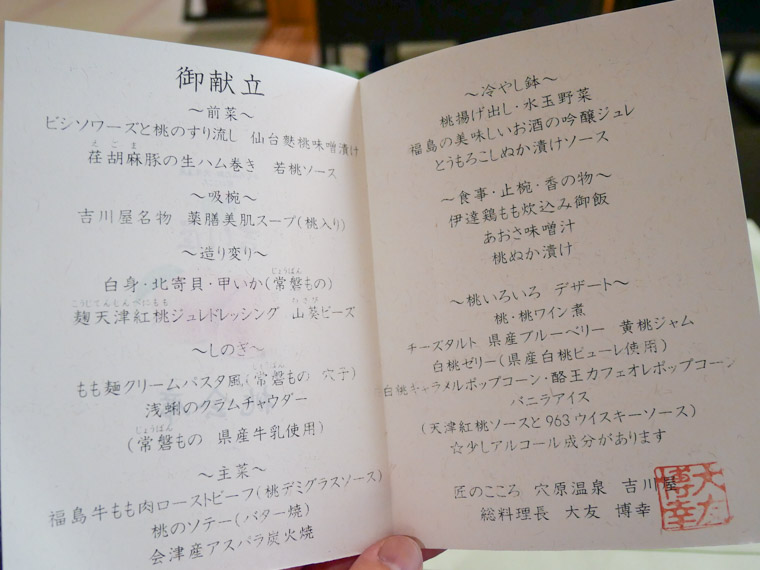 御献立
～前菜～
ビシソワーズと桃のすり流し 仙台麩桃味噌漬け
えごま
荏胡麻豚の生ハム巻き 若桃ソース
～吸椀～
吉川屋名物 薬膳美肌スープ(桃入り)
～造り変り～
じょうばん
白身・北寄貝・甲いか(常磐もの)
こうじてんしんべにもも わさび
麹天津紅桃ジュレドレッシング 山葵ビーズ
～しのぎ～
もも麺クリームパスタ風(常磐もの 穴子)
浅蜊のクラムチャウダー
じょうばん
(常磐もの 県産牛乳使用)
～主菜～
福島牛もも肉ローストビーフ(桃デミグラスソース)
桃のソテー(バター焼)
会津産アスパラ炭火焼
～冷やし鉢～
桃揚げ出し・水玉野菜
福島の美味しいお酒の吟醸ジュレ
とうもろこしぬか漬けソース
～食事・止椀・香の物～
伊達鶏もも炊込み御飯
あおさ味噌汁
桃ぬか漬け
～桃いろいろ デザート～
桃・桃ワイン煮
チーズタルト 県産ブルーベリー 黄桃ジャム
白桃ゼリー(県産白桃ピューレ使用)
白桃キャラメルポップコーン・酪王カフェオレポップコーン
バニラアイス
(天津紅桃ソースと963ウイスキーソース)
☆少しアルコール成分があります
匠のこころ 穴原温泉 吉川屋
総料理長 大友 博幸